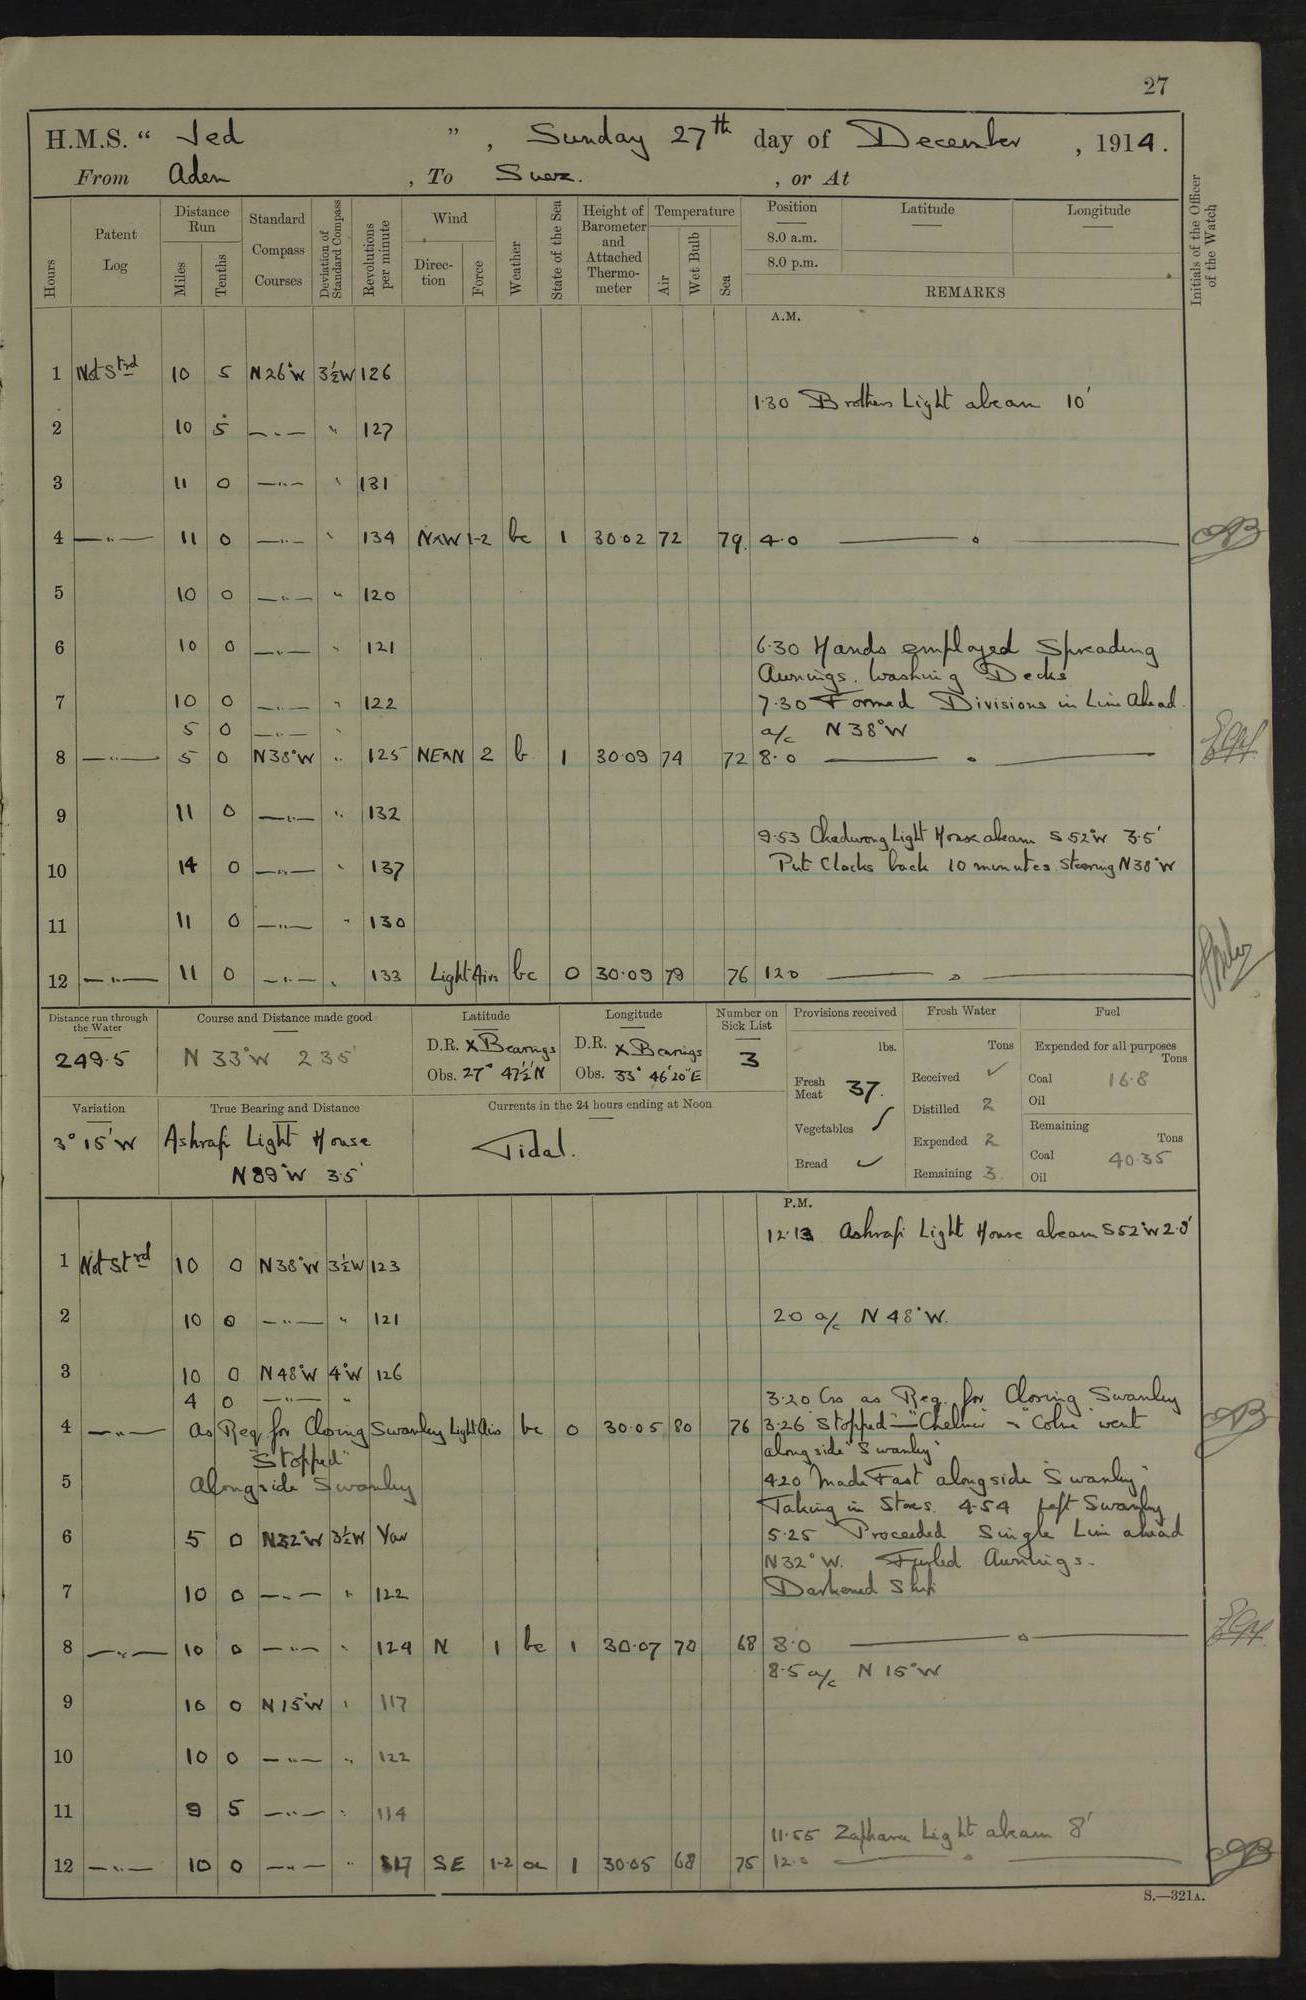 27
H.M.S. " Jed ", Sunday 27th day of December, 1914.
From Aden, To Suez., or At
Hours
Patent Log
Distance Run
Miles
Tenths
Standard Compass Courses
Deviation of Standard Compass
Revolutions per minute
Wind
Direction
Force
Weather
State of the Sea
Height of Barometer and Attached Thermometer
Temperature
Air
Wet Bulb
Sea
Position
8.0 a.m.
8.0 p.m.
Latitude
Longitude
REMARKS
Initials of the Officer of the Watch
A.M.
1 Not Strd 10 5 N26°W 3½W 126
1.30 Brothers Light abeam 10'
2 10 5 —"— " 127
3 11 0 —"— " 131
4 —"— 11 0 —"— " 134 NxW 1-2 bc 1 30.02 72 79 4.0
5 10 0 —"— " 120
6 10 0 —"— " 121 6.30 Hands employed Spreading
Awnings. Washing Decks
7 10 0 —"— " 122 7.30 Formed Divisions in Line Ahead.
5 0 —"— " a/c N38°W
8 —"— 5 0 N38°W " 125 NExN 2 b 1 30.09 74 72 8.0
9 11 0 —"— " 132
9.53 Light House abeam S52°W 3.5'
10 14 0 —"— " 137 Put Clocks back 10 minutes. Steering N38°W
11 11 0 —"— " 130
12 —"— 11 0 —"— " 133 Light Airs bc 0 30.09 79 76 12.0
Distance run through the Water
249.5
Course and Distance made good
N 33°W 235'
Latitude
D.R. x Bearings
Obs. 27° 47½'N
Longitude
D.R. x Bearings
Obs. 33° 46'20"E
Number on Sick List
3
Provisions received
lbs.
Fresh Meat 37.
Vegetables ✓
Bread ✓
Fresh Water
Tons
Received ✓
Distilled 2
Expended 2
Remaining 3
Fuel
Expended for all purposes
Tons
Coal 16.8
Oil
Remaining
Tons
Coal 40.35
Oil
Variation
3° 15'W
True Bearing and Distance
Ashrafi Light House
N89°W 3.5'
Currents in the 24 hours ending at Noon
Tidal.
P.M.
12.13 Ashrafi Light House abeam S52°W 2.9'
1 Not Strd 10 0 N38°W 3½W 123
2 10 0 —"— " 121 2.0 a/c N48°W.
3 10 0 N48°W 4°W 126
4 0 —"— " 3.20 Cos as Req. for Closing Swanley
4 —"— as Req for Closing Swanley Light Airs bc 0 30.05 80 76 3.26 Stopped — "Chelmer" & "Colne" went
"Stopped" alongside "Swanley"
5 Alongside Swanley 4.20 Made Fast alongside "Swanley"
Taking in Stores. 4.54 Left Swanley
6 5 0 N32°W 3½W Var 5.25 Proceeded Single Line ahead
N32°W. Furled Awnings.
7 10 0 —"— " 122 Darkened Ship
8 —"— 10 0 —"— " 124 N 1 bc 1 30.07 70 68 8.0
8.5 a/c N 15°W
9 10 0 N15°W " 117
10 10 0 —"— " 122
11 9 5 —"— " 114
11.55 Zafarana Light abeam 8'
12 —"— 10 0 —"— " 117 SE 1-2 oc 1 30.05 68 75 12.0
S.—321A.